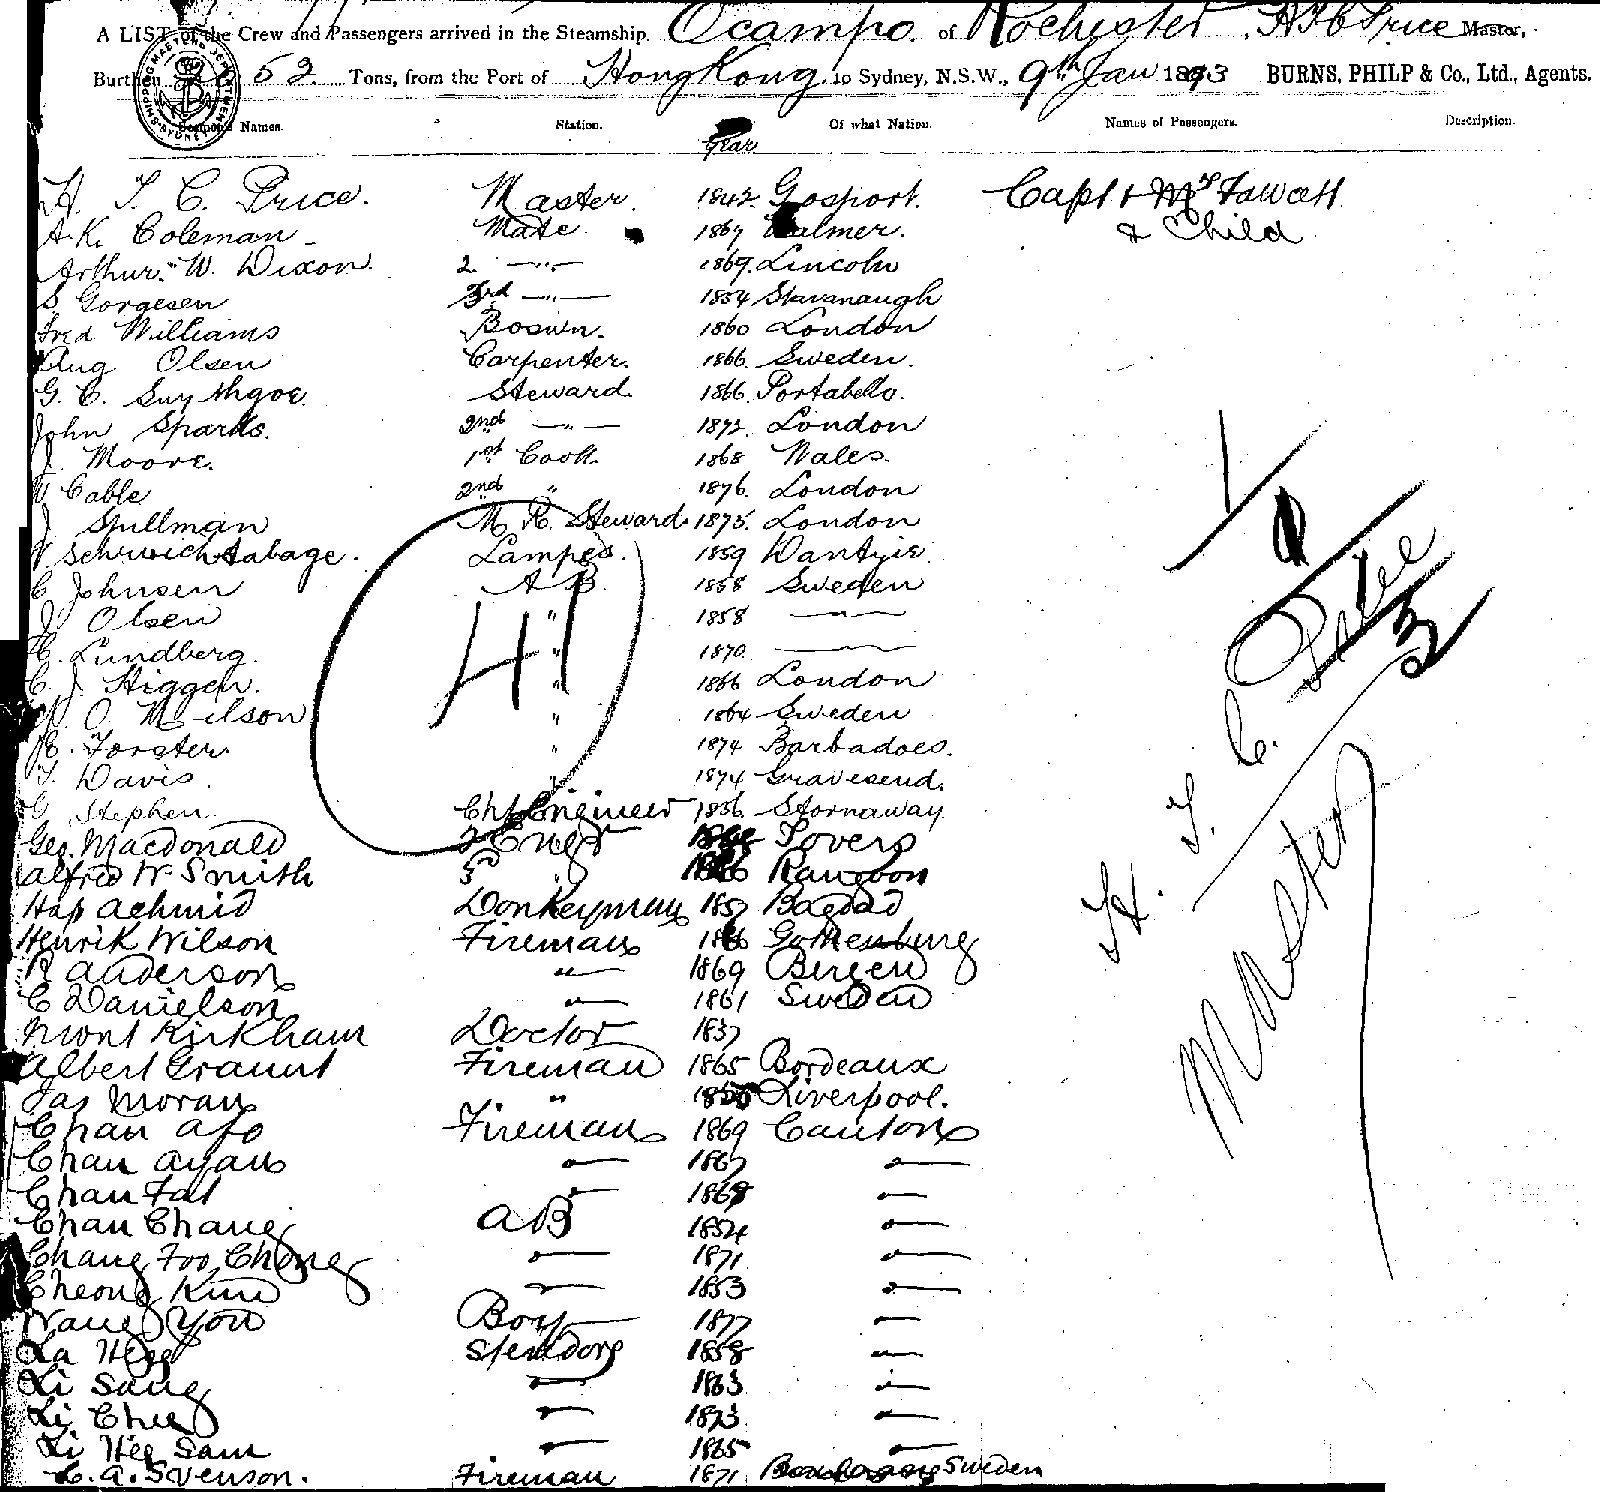 A LIST of the Crew and Passengers arrived in the Steamship. Ocampo. of Rochester, H T C Price Master,
Burthen 52 Tons, from the Port of Hong Kong to Sydney, N.S.W., 9th Jan 1893 BURNS, PHILP & Co., Ltd., Agents.
Names. Station. Year Of what Nation. Names of Passengers. Description.
H. T. C. Price. Master. 1842 Gosport. Capt & Mrs Fawatt
A. K. Coleman Mate 1867 Walmer. & Child
Arthur W. Dixon. 2 — " — 1869. Lincoln
S. Gorgesen 3rd — " — 1854 Stavanaugh
Fred Williams Boswn. 1860 London
Aug Olsen Carpenter. 1866. Sweden.
G. C. Smythgoe. Steward. 1866. Portabello.
John Sparks. 2nd — " — 1872. London
J. Moore. 1st Cook. 1868 Wales.
W Cable 2nd " 1876. London
J. Spillman M. R. Steward. 1875. London
Lamps. 1859 Dantzic
C Johnsen A B. 1858 Sweden
J. Olsen " 1858 —
C. Lundberg. " 1870 —
C. J. Higgen. " 1866 London
" 1864 Sweden
E. Forster. " 1874 Barbadoes.
T. Davis. " 1874 Gravesend.
G Stephen. Chf Engineer 1836. Stornaway
41
Geo. Macdonald 2 Engr
Alfred W Smith Rangoon
Hap Achmid Donkeyman 1857 Bagdad
Henrik Wilson Fireman 1866 Gothenburg
R Anderson " 1869 Bergen
C Danielson " 1861 Sweden
Mont Kirkham Doctor 1837
Albert Graunt Fireman 1865 Bordeaux
Jas Moran " Liverpool.
Chan Afo Fireman 1869 Canton
Chan Ayan — 1867 —
Chan Fat — 1868 —
Chan Chang AB 1854 —
Chang Foo Chong — 1871 —
Cheong Kim — 1853 —
Wang You Boy 1877 —
La Hee 1858 —
Li Sang — 1863 —
Li Chee — 1873 —
Li Hee Sam — 1865 —
C. A. Svenson. Fireman 1871 Sweden
H. T. C. Price
Master